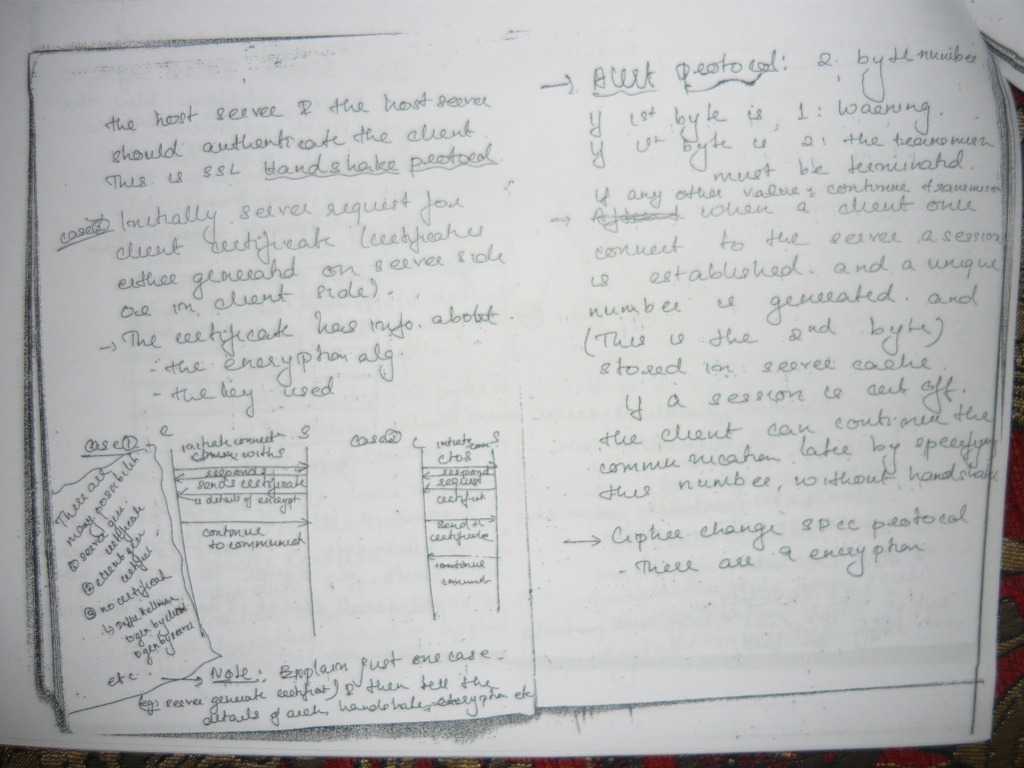 the host server & the host server
should authenticate the client.
This is SSL Handshake protocol
case② Initially server request for
client certificate (certificates
either generated on server side
or in client side).
→ The certificate has info. about
- the encryption alg.
- the key used
case① C S
initiate connect
comm. with S
responds,
sends certificate
& details of encrypt
continue
to communicat
There are
many possibilities
① server gen
certificate
② client gen
certificat
③ no certificate
↳ Diffie Hellman
↳ gen by client
↳ gen by server
etc
case② C S
initiate conn
C to S
respond
request
certificat
send
certificate
continue
commut
→ Note: Explain just one case.
(eg: server generate certificat) & then tell the
details of auth, handshake, encryption etc
→ Alert protocol: 2 byte number
If 1st byte is 1: Warning.
If 1st byte is 2: the transmission
must be terminated.
if any other value: continue transmission
→ When a client once
connect to the server a session
is established. and a unique
number is generated. and
(This is the 2nd byte)
stored in server cache.
If a session is cut off.
the client can continue the
communication later by specifying
this number, without handshake
→ Cipher change Spec protocol
- There are 9 encryption